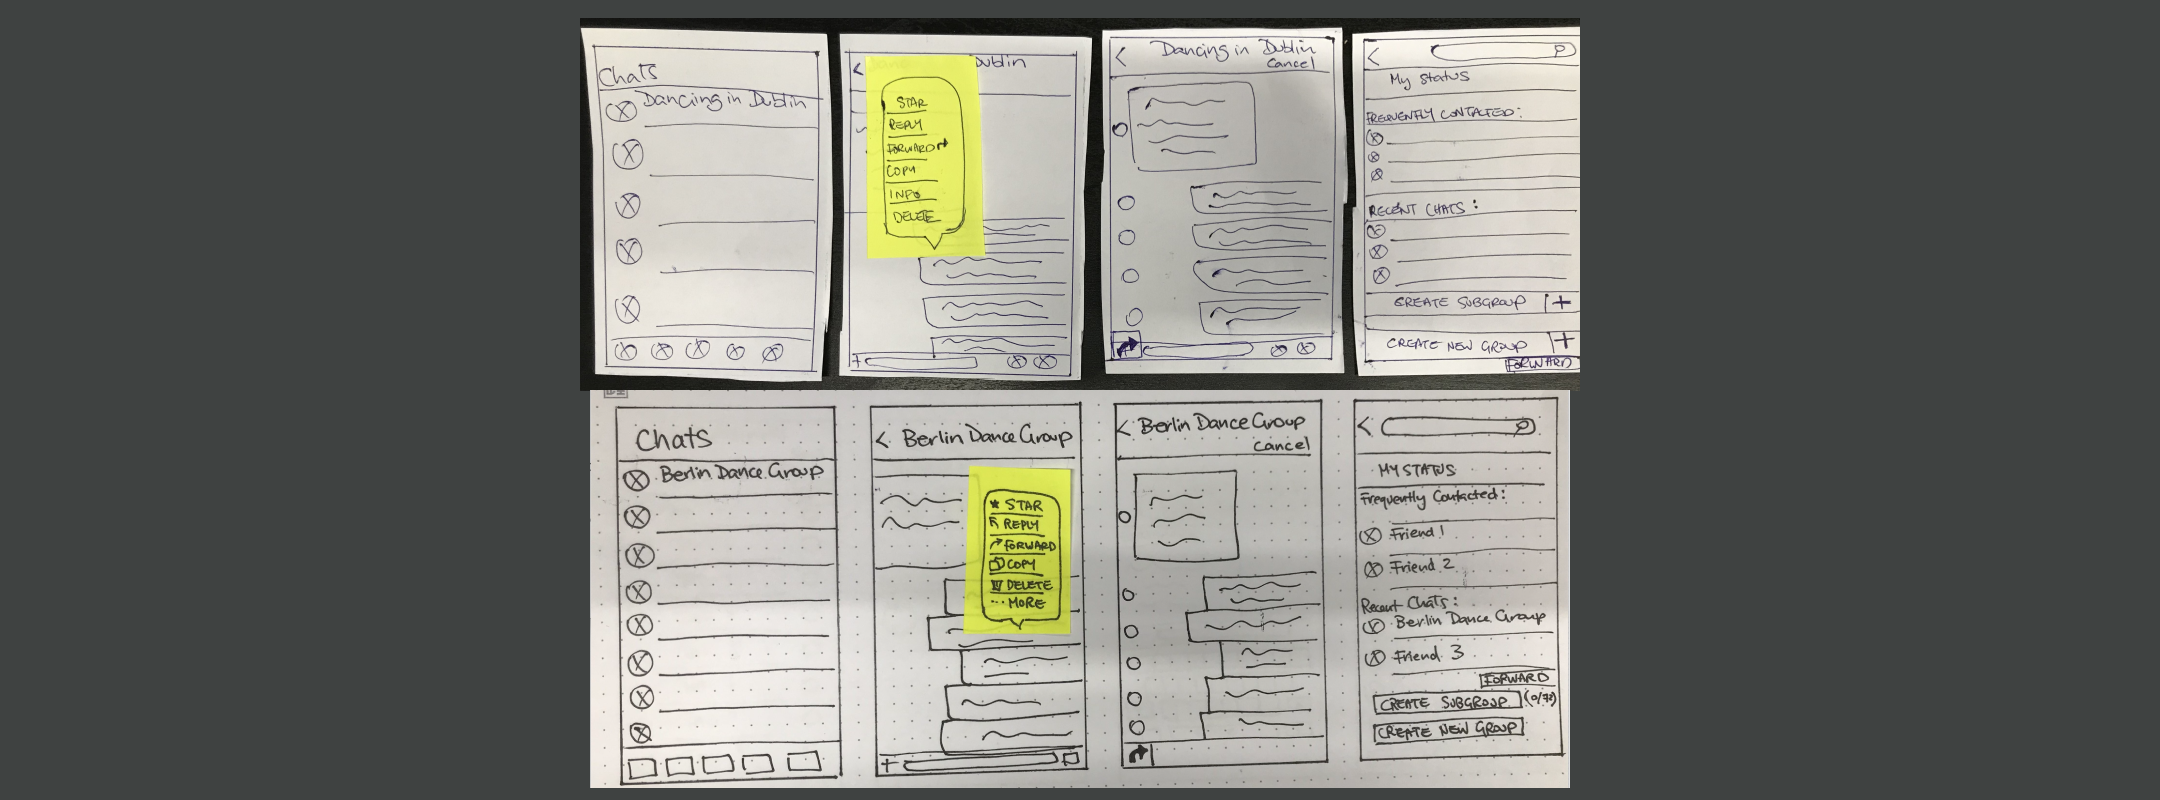 Chats
Dancing in Dublin
Dublin
STAR
REPLY
FORWARD
COPY
INFO
DELETE
Dancing in Dublin
Cancel
My status
FREQUENTLY CONTACTED:
RECENT CHATS:
CREATE SUBGROUP
CREATE NEW GROUP
FORWARD
Chats
Berlin Dance Group
Berlin Dance Group
STAR
REPLY
FORWARD
COPY
DELETE
... MORE
Berlin Dance Group
Cancel
MY STATUS
Frequently Contacted:
Friend 1
Friend 2
Recent Chats:
Berlin Dance Group
Friend 3
FORWARD
CREATE SUBGROUP
CREATE NEW GROUP